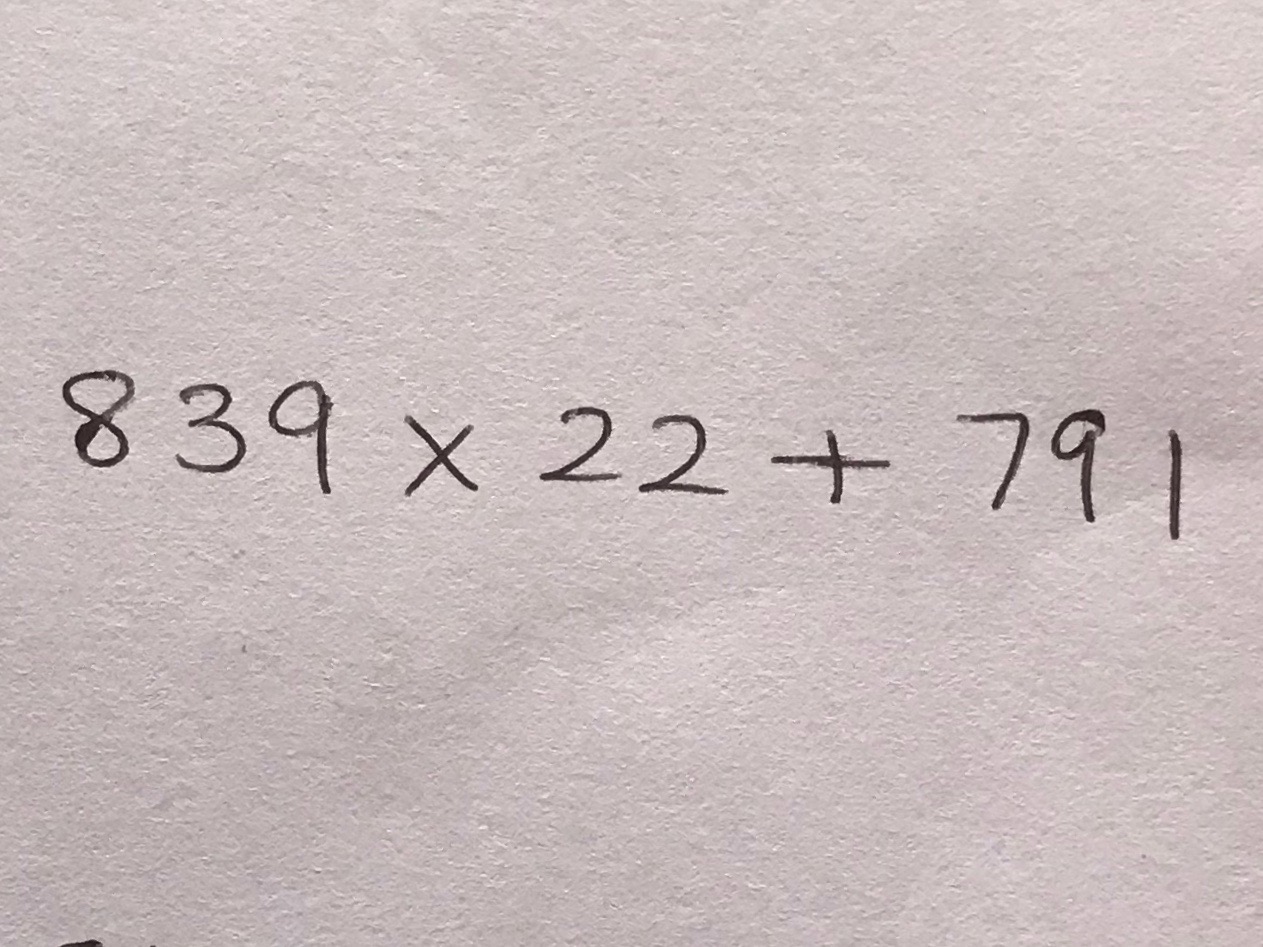 839 × 22 + 791